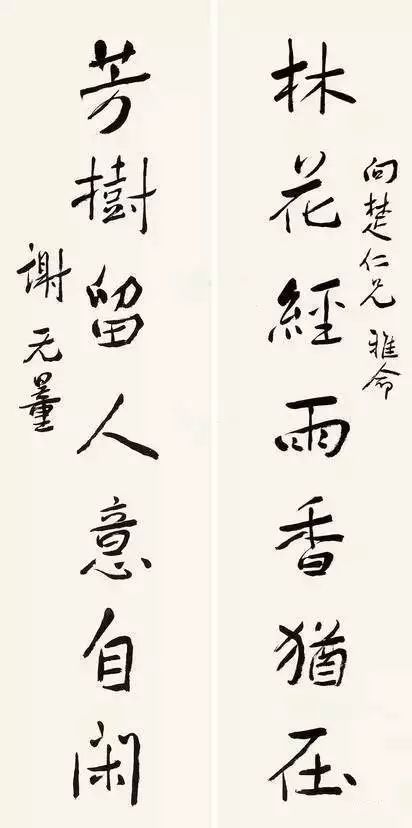 向楚仁兄 雅命
林花經雨香猶在
芳樹留人意自閑
謝无量